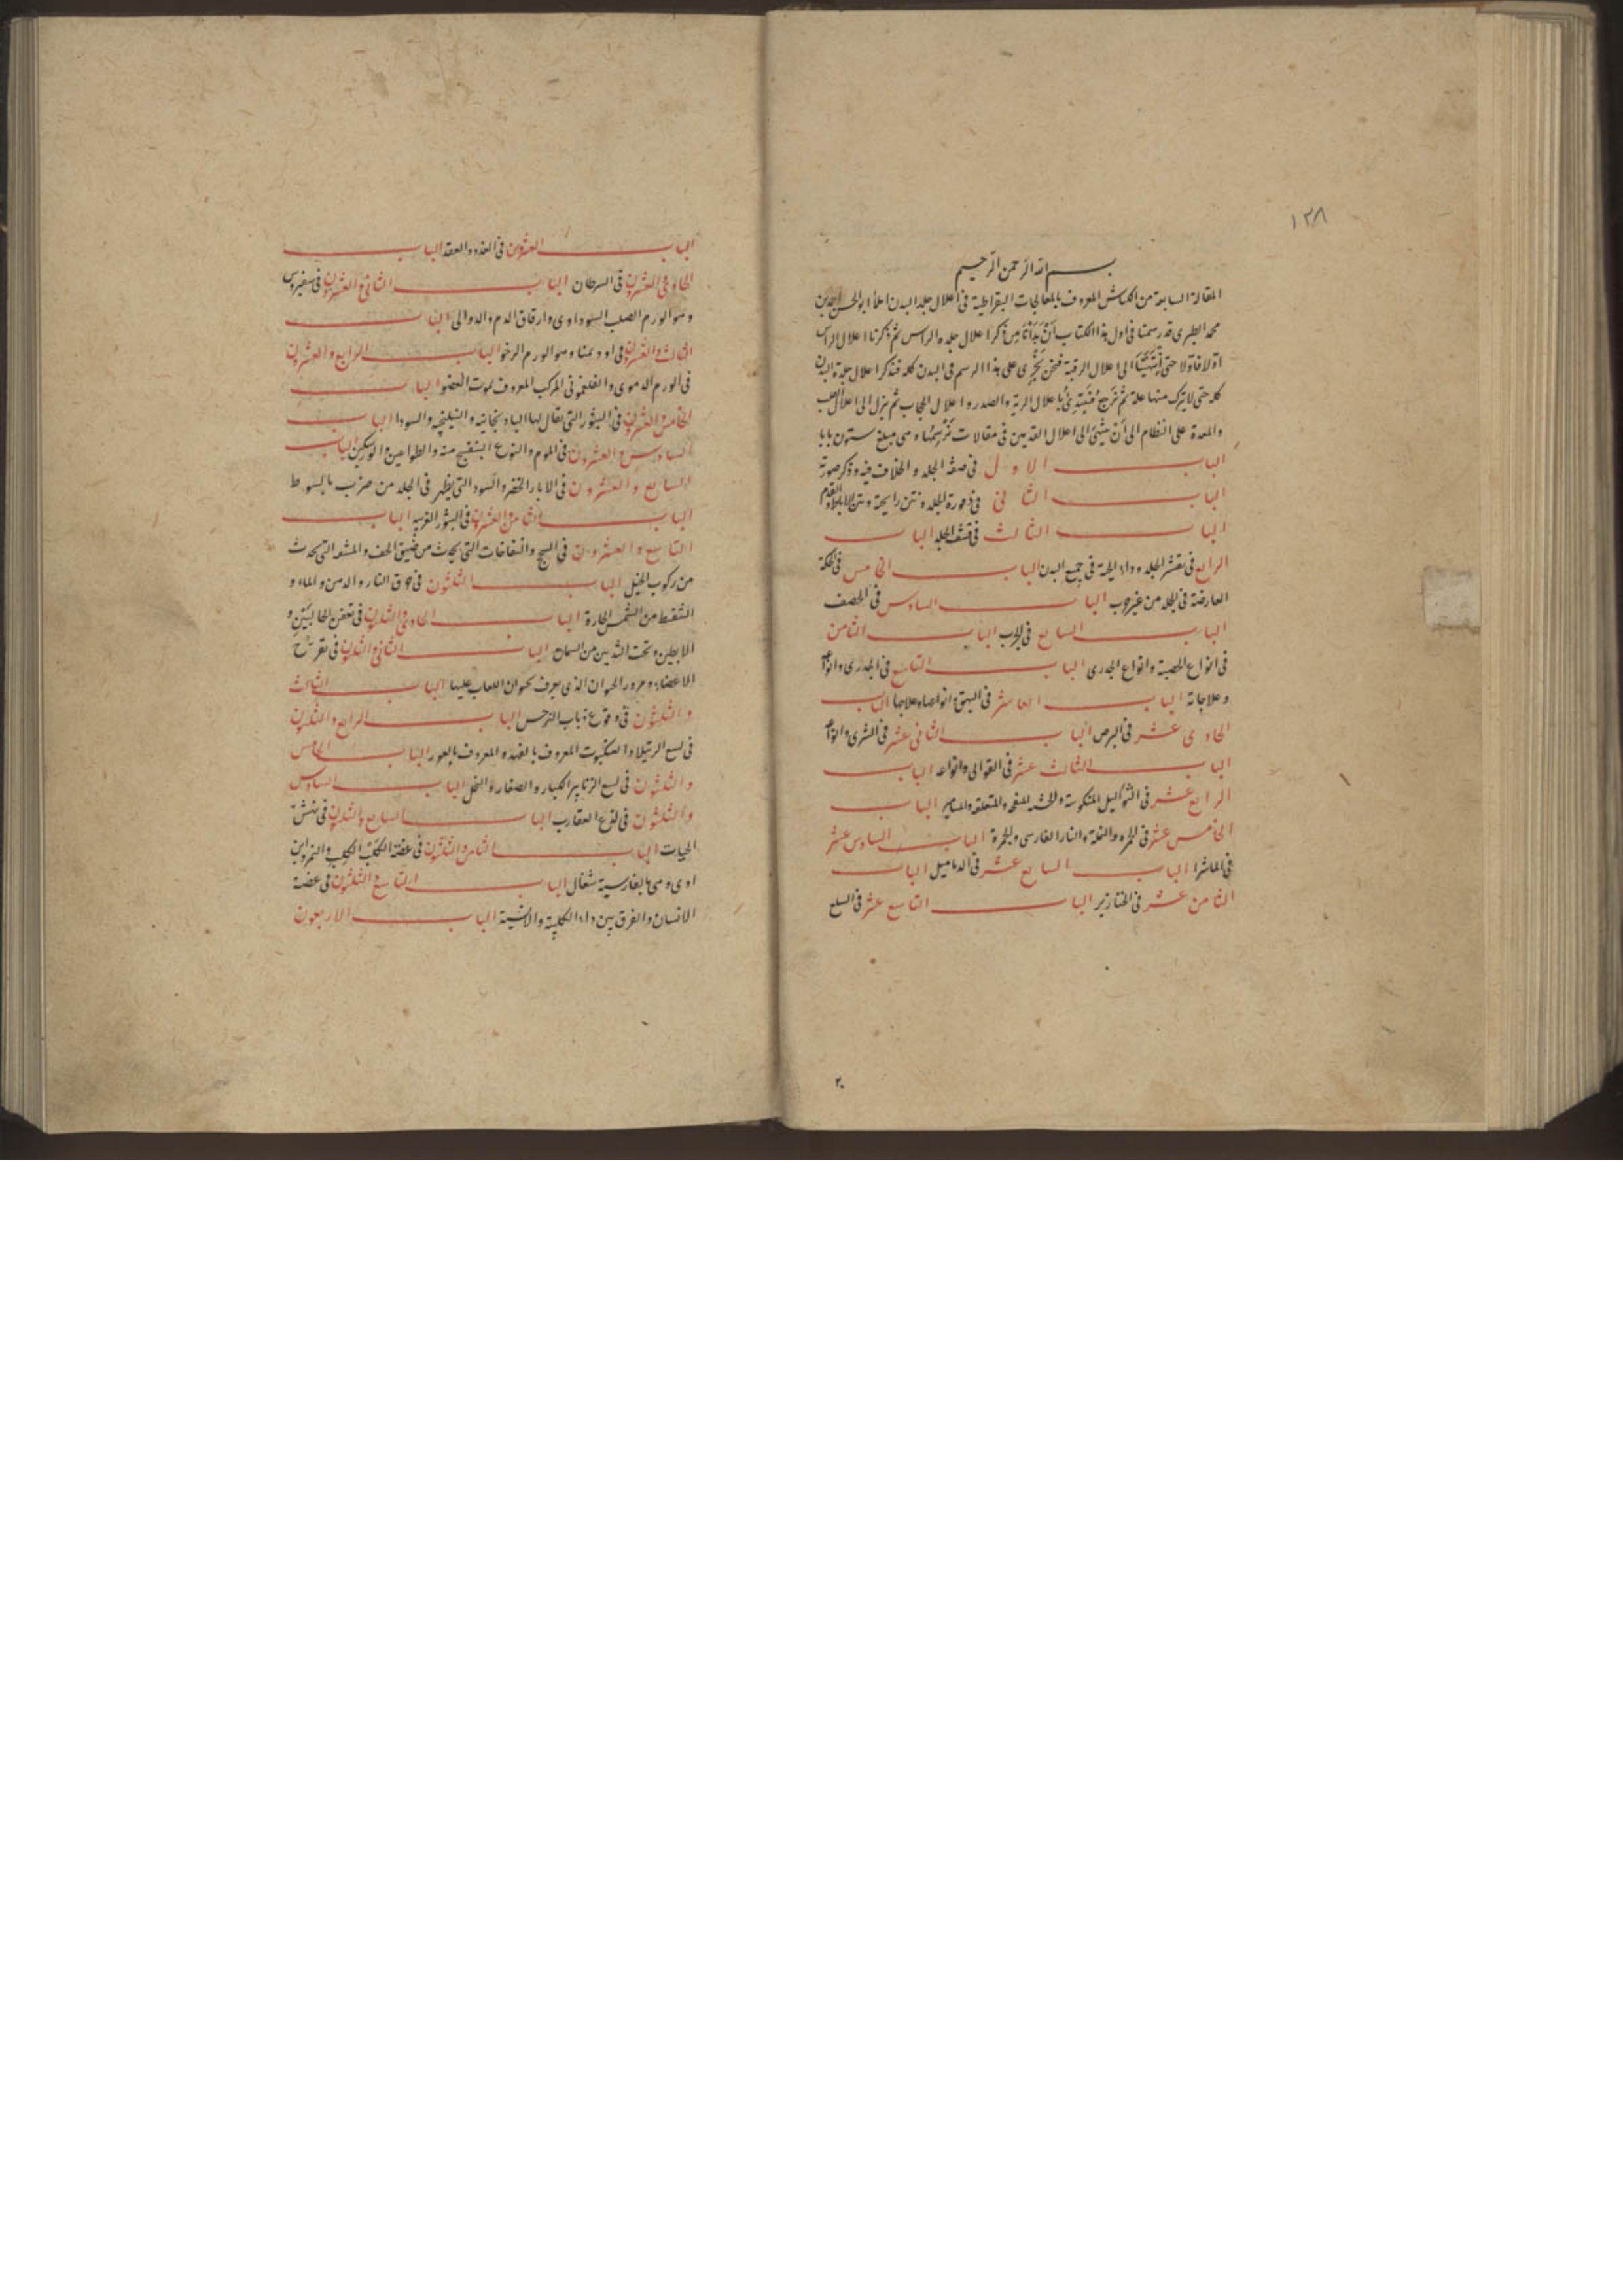 ١٢٨
بسم الله الرحمن الرحيم
المقالة السابعة من الكناش المعروف بالمعالجات البقراطية فى اعلال جلد البدن املأ ابو الحسن احمد بن
محمد الطبرى قد رسمنا فى اول هذا الكتاب أَنْ بَدَأْنَا مِن ذكر اعلال جلدة الراس ثم ذكرنا اعلال الراس
اوّلا فاوّلا حتى اِنْتَهَيْنَا الى اعلال الرقبة فنحن نَجْرِى على هذا الرسم فى البدن كله فنذكر اعلال جلدة البدن
كله حتى لا يترك منها علة ثم نَخرج مُبْتَدِئ باعلال الرية والصدر واعلال الحجاب ثم ينزل الى اعلال القلب
والمعدة على النظام الى أن ينتهى الى اعلال القدمين فى مقالات نَرْسِمُهَا وهى مبلغ ستون بابا
الباب الاول فى صفة الجلد والخلاف فيه وذكر صورته
الباب الثانى فى ذفورة الجلد ونتن رايحته ونتن الاباط والقدم
الباب الثالث فى قشف الجلد الباب
الرابع فى تقشر الجلد وداء الحية فى جميع البدن الباب الخامس فى الحكة
العارضة فى الجلد من غير جرب الباب السادس فى الحصف
الباب السابع فى الجرب الباب الثامن
فى انواع الحصبة وانواع الجدرى الباب التاسع فى الجدرى وانواعه
وعلاجاته الباب العاشر فى البهق وانواعه وعلاجها الباب
الحادى عشر فى البرص الباب الثانى عشر فى الشرى وانواعه
الباب الثالث عشر فى القوابى وانواعه الباب
الرابع عشر فى الثواليل المنكوسة والمتعلقة والمسامير الباب
الخامس عشر فى الحمره والنملة والنار الفارسى والجمرة الباب السادس عشر
فى الماشرا الباب السابع عشر فى الدماميل الباب
الثامن عشر فى الخنازير الباب التاسع عشر فى السلع
٢٠
الباب العشرون فى الغدد والعقد الباب
الحادى والعشرون فى السرطان الباب الثانى والعشرون فى سقيروس
وهو الورم الصلب السوداوى وارقاق الدم والدوالى الباب
الثالث والعشرون فى اوديمنا وهو الورم الرخو الباب الرابع والعشرون
فى الورم الدموى والفلغمونى المركب المعروف بموت العضو الباب
الخامس والعشرون فى البثور التى يقال لها الباذنجانيه والنيلنجيه والسودا الباب
السادس والعشرون فى الموم والنوع المنفتح منه والطواعين الباب
السابع والعشرون فى الاثار الخضر والسود التى يظهر فى الجلد من ضرب بالسوط
الباب الثامن والعشرون فى البثور الغريبه الباب
التاسع والعشرون فى السحج وانتفاخات التى يحدث من ضيق الخف والمشقه التى يحدث
من ركوب الخيل الباب الثلثون فى حرق النار والدهن والماء و
الشقط من الشمس الحارة الباب الحادى والثلثون فى تعفن الحالبين و
الابطين وتحت الثديين من السمان الباب الثانى والثلثون فى تقريح
الاعضاء ومرور الحيوان الذى يعرف بحيوان اللعاب عليها الباب الثالث
والثلثون فى وقوع ذباب النرجس الباب الرابع والثلثون
فى لسع الرتيلا والعنكبوت المعروف بالفهد والمعروف بالعور الباب الخامس
والثلثون فى لسع الزنابير الكبار والصغار والنحل الباب السادس
والثلثون فى لدغ العقارب الباب السابع والثلثون فى نهش
الحيات الباب الثامن والثلثون فى عضة الكلب الكلب والنمر وابن
اوى وهى بالفارسية شغال الباب التاسع والثلثون فى عضة
الانسان والفرق بين داء الكلبية والانسية الباب الاربعون